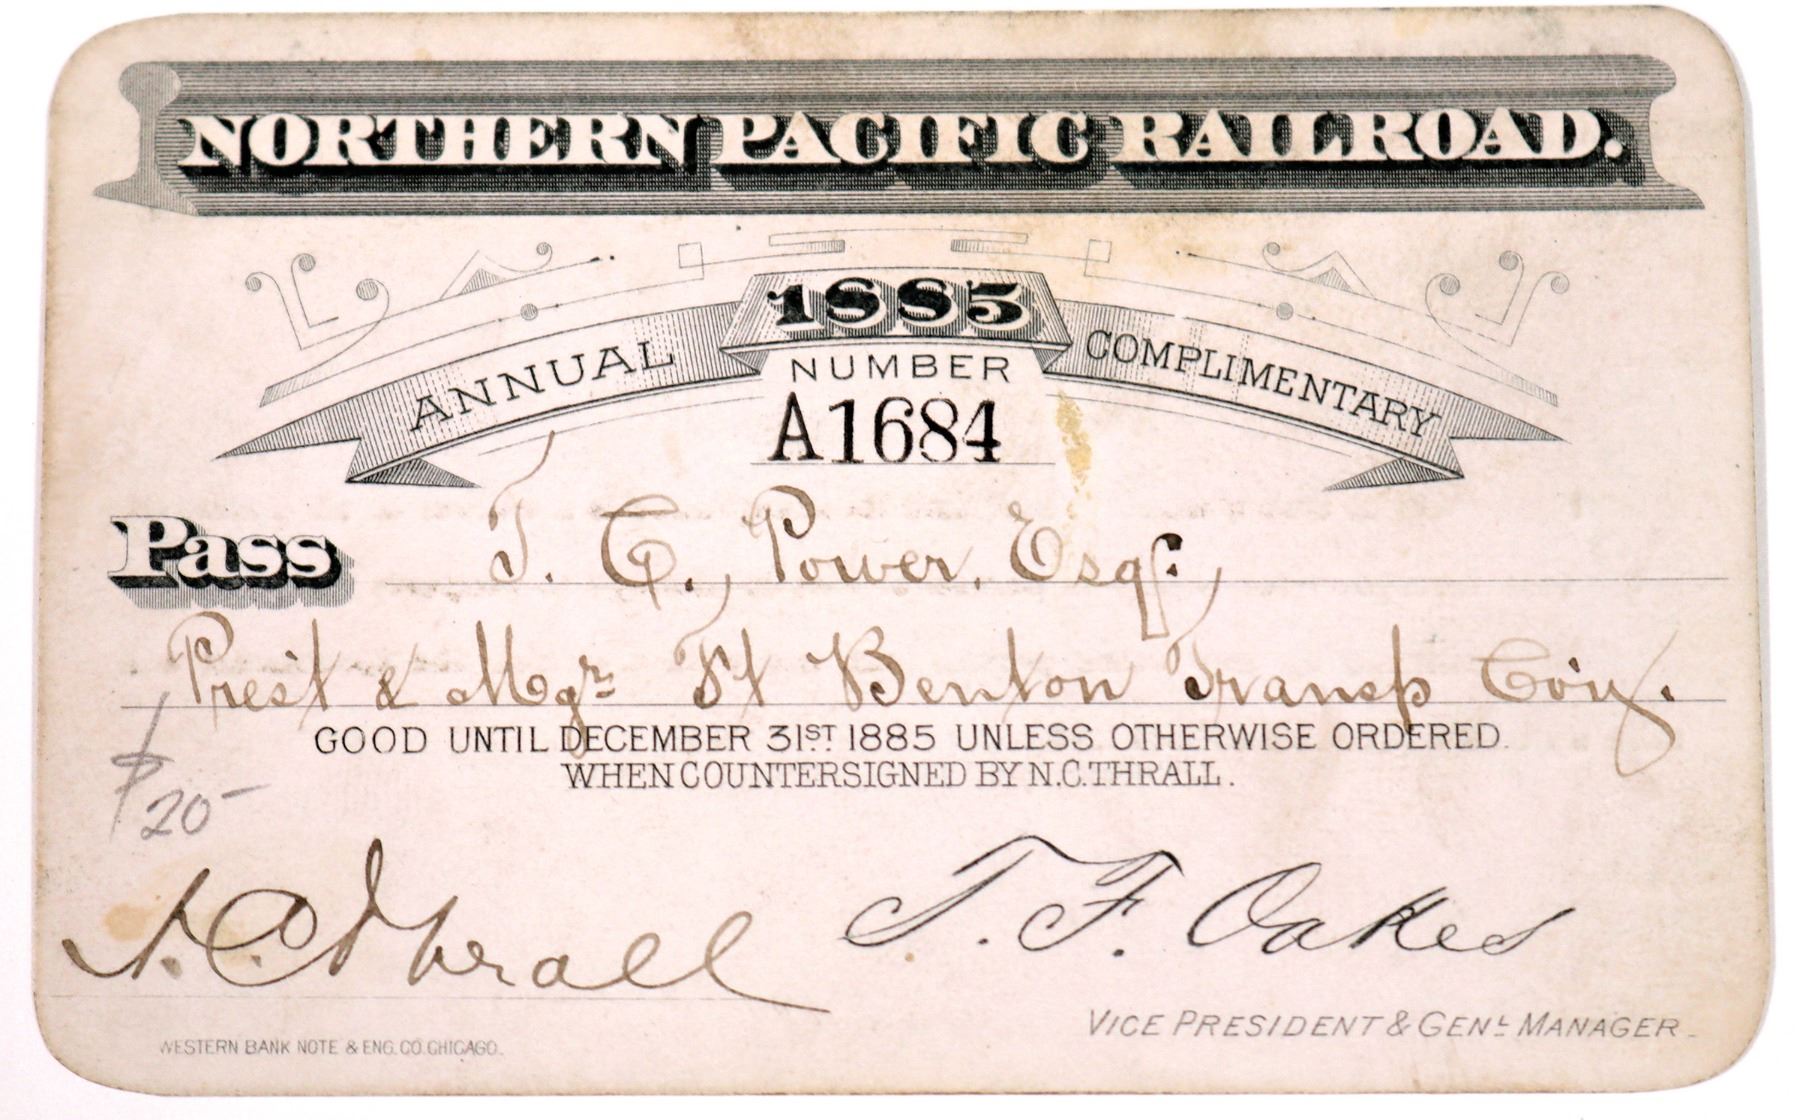 NORTHERN PACIFIC RAILROAD.
1885
ANNUAL COMPLIMENTARY
NUMBER
A1684
Pass T. C. Power, Esqr.,
Prest & Mgr Ft Benton Transp Coy.
GOOD UNTIL DECEMBER 31ST 1885 UNLESS OTHERWISE ORDERED.
WHEN COUNTERSIGNED BY N.C. THRALL.
$20-
N.C. Thrall T. F. Oakes
VICE PRESIDENT & GENL MANAGER.
WESTERN BANK NOTE & ENG. CO. CHICAGO.